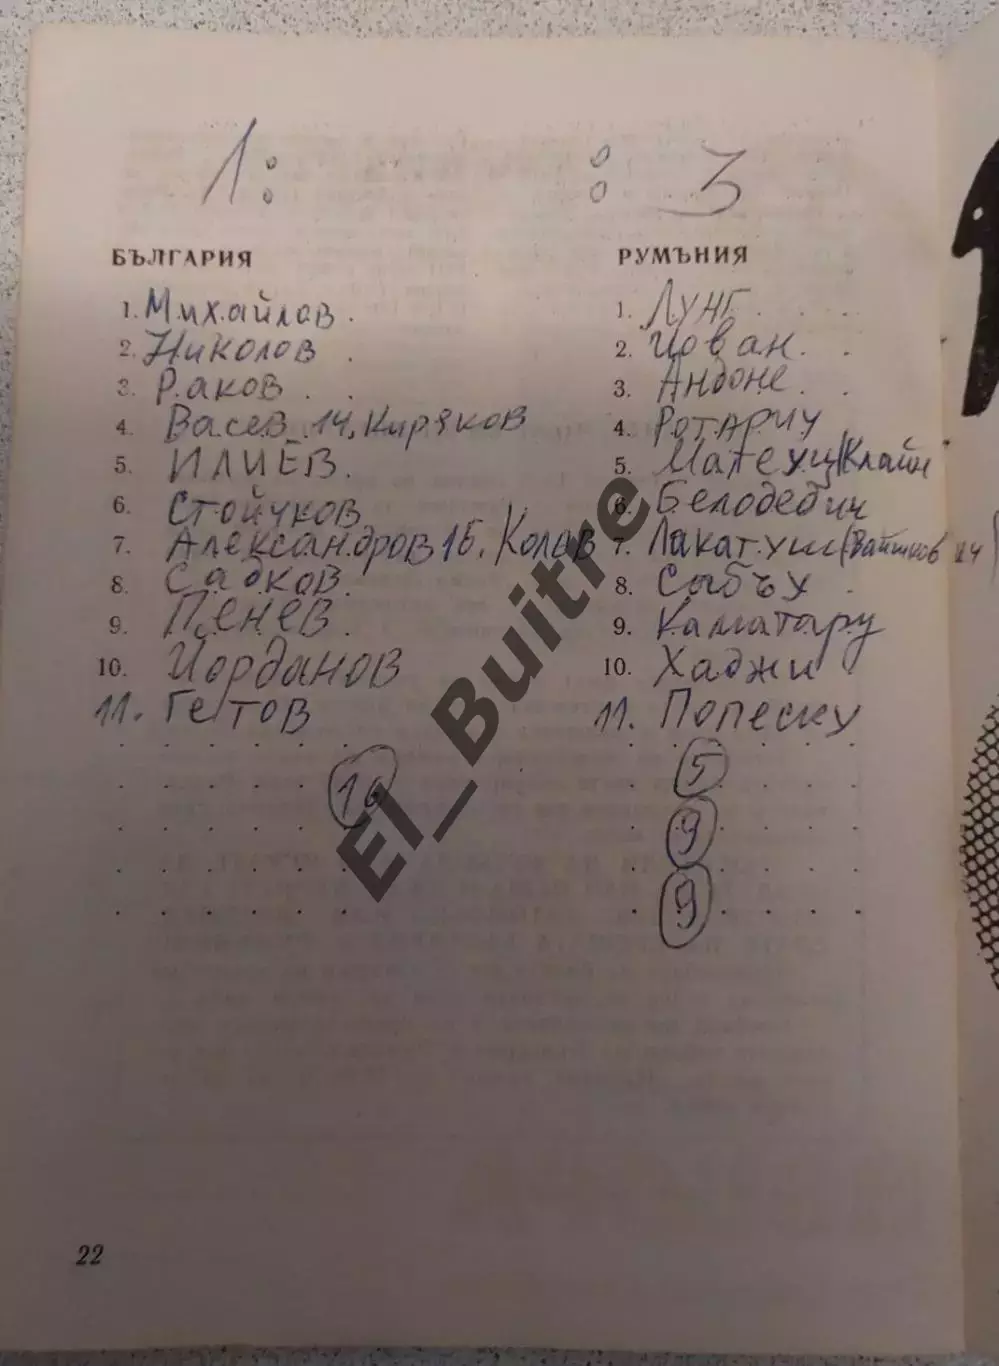 1 : : 3
БЪЛГАРИЯ РУМЪНИЯ
1. Михайлов 1. Лунг
2. Николов 2. Йован
3. Раков 3. Андоне
4. Васев 14, Киряков 4. Ротариу
5. ИЛИЕВ. 5. Матеуц/Клайн
6. Стойчков 6. Белодедич
7. Александров 16, Колев 7. Лакатуш
8. Садков 8. Сыбъу
9. Пенев 9. Каматару
10. Йорданов 10. Хаджи
11. Гетов 11. Попеску
10 5
9
9
El_Buitre
22